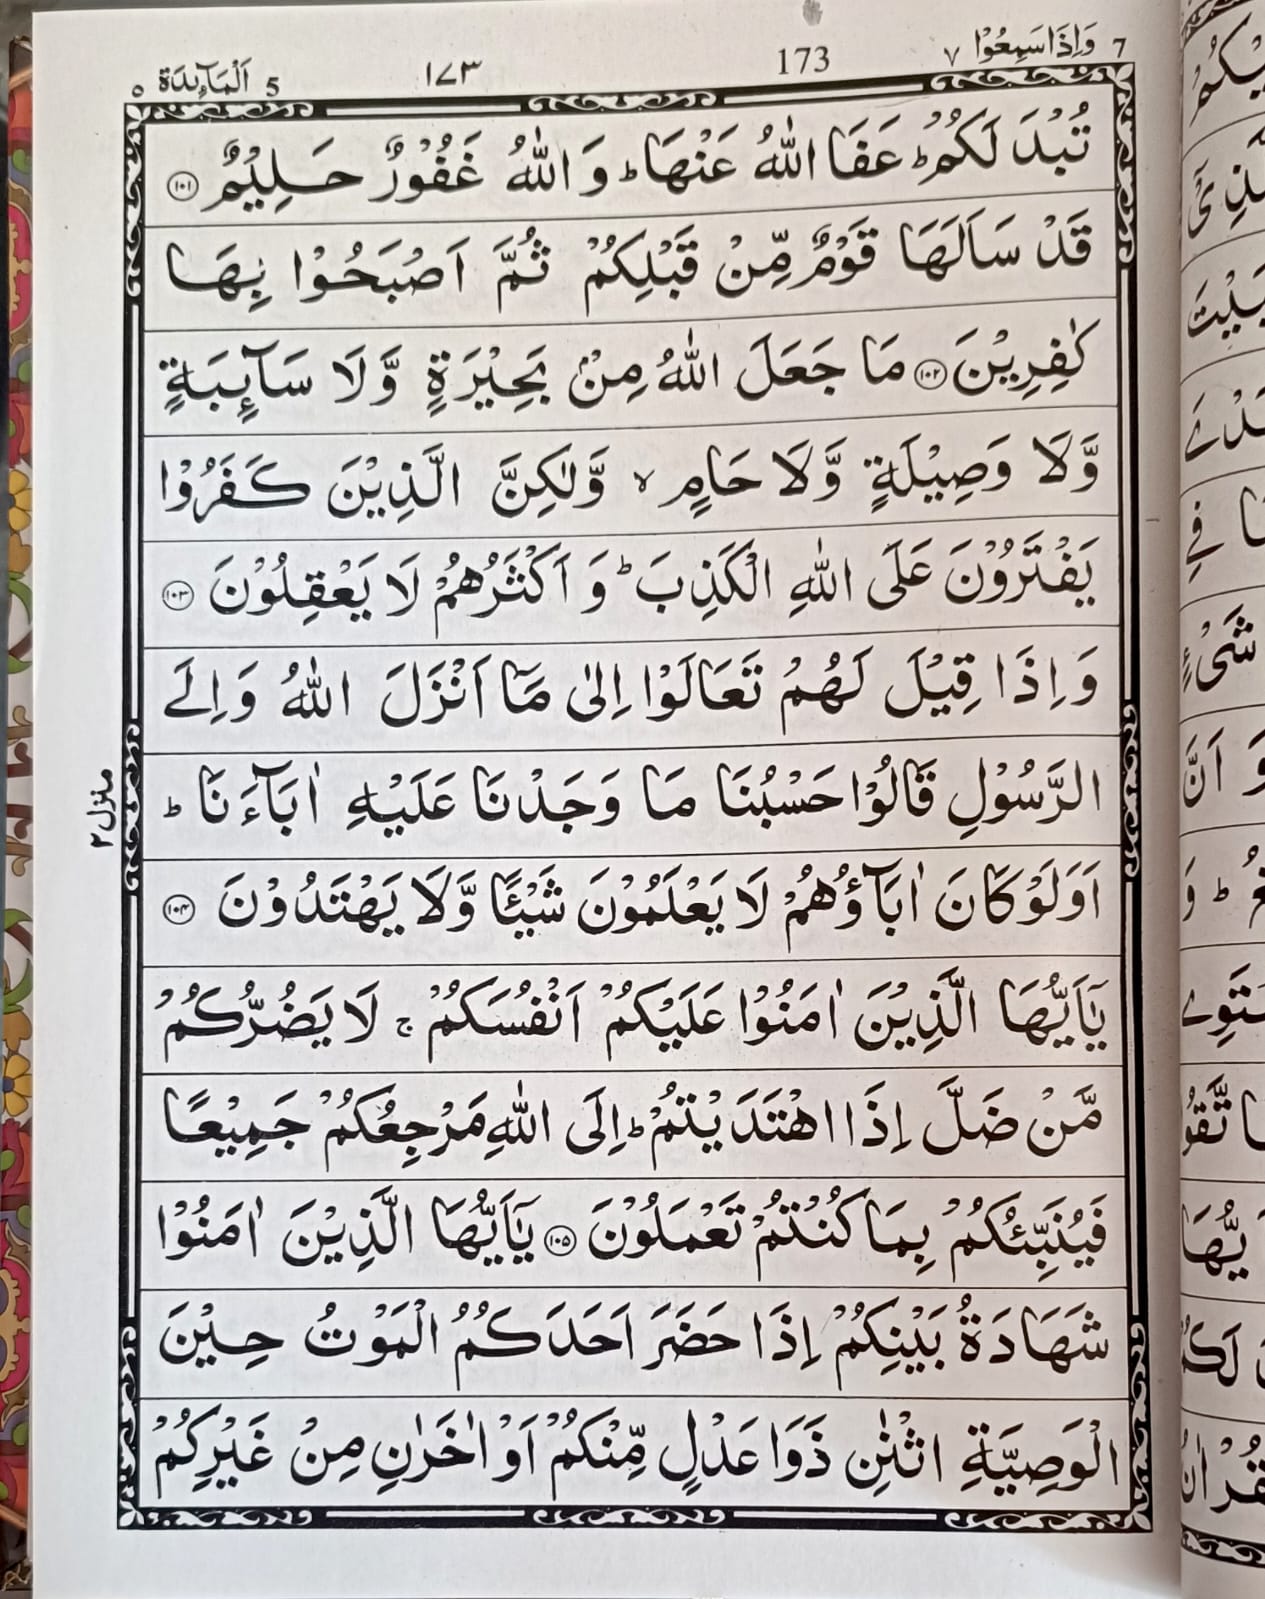 اَلْمَآئِدَة ٥ 5 ١٧٣ 173 وَاِذَا سَمِعُوْا ٧ 7
تُبْدَ لَكُمْ ؕ عَفَا اللّٰهُ عَنْهَا ؕ وَ اللّٰهُ غَفُوْرٌ حَلِيْمٌ ﴿١٠١﴾
قَدْ سَاَلَهَا قَوْمٌ مِّنْ قَبْلِكُمْ ثُمَّ اَصْبَحُوْا بِهَا
كٰفِرِيْنَ ﴿١٠٢﴾ مَا جَعَلَ اللّٰهُ مِنْۢ بَحِيْرَةٍ وَّلَا سَآئِبَةٍ
وَّلَا وَصِيْلَةٍ وَّلَا حَامٍ ۙ وَّلٰكِنَّ الَّذِيْنَ كَفَرُوْا
يَفْتَرُوْنَ عَلَى اللّٰهِ الْكَذِبَ ؕ وَ اَكْثَرُهُمْ لَا يَعْقِلُوْنَ ﴿١٠٣﴾
وَ اِذَا قِيْلَ لَهُمْ تَعَالَوْا اِلٰى مَاۤ اَنْزَلَ اللّٰهُ وَ اِلَى
الرَّسُوْلِ قَالُوْا حَسْبُنَا مَا وَجَدْنَا عَلَيْهِ اٰبَآءَنَا ؕ
اَوَلَوْ كَانَ اٰبَآؤُهُمْ لَا يَعْلَمُوْنَ شَيْئًا وَّلَا يَهْتَدُوْنَ ﴿١٠٤﴾
يٰۤاَيُّهَا الَّذِيْنَ اٰمَنُوْا عَلَيْكُمْ اَنْفُسَكُمْ ۚ لَا يَضُرُّكُمْ
مَّنْ ضَلَّ اِذَا اهْتَدَيْتُمْ ؕ اِلَى اللّٰهِ مَرْجِعُكُمْ جَمِيْعًا
فَيُنَبِّئُكُمْ بِمَا كُنْتُمْ تَعْمَلُوْنَ ﴿١٠٥﴾ يٰۤاَيُّهَا الَّذِيْنَ اٰمَنُوْا
شَهَادَةُ بَيْنِكُمْ اِذَا حَضَرَ اَحَدَكُمُ الْمَوْتُ حِيْنَ
الْوَصِيَّةِ اثْنٰنِ ذَوَا عَدْلٍ مِّنْكُمْ اَوْ اٰخَرٰنِ مِنْ غَيْرِكُمْ
منزل ٢